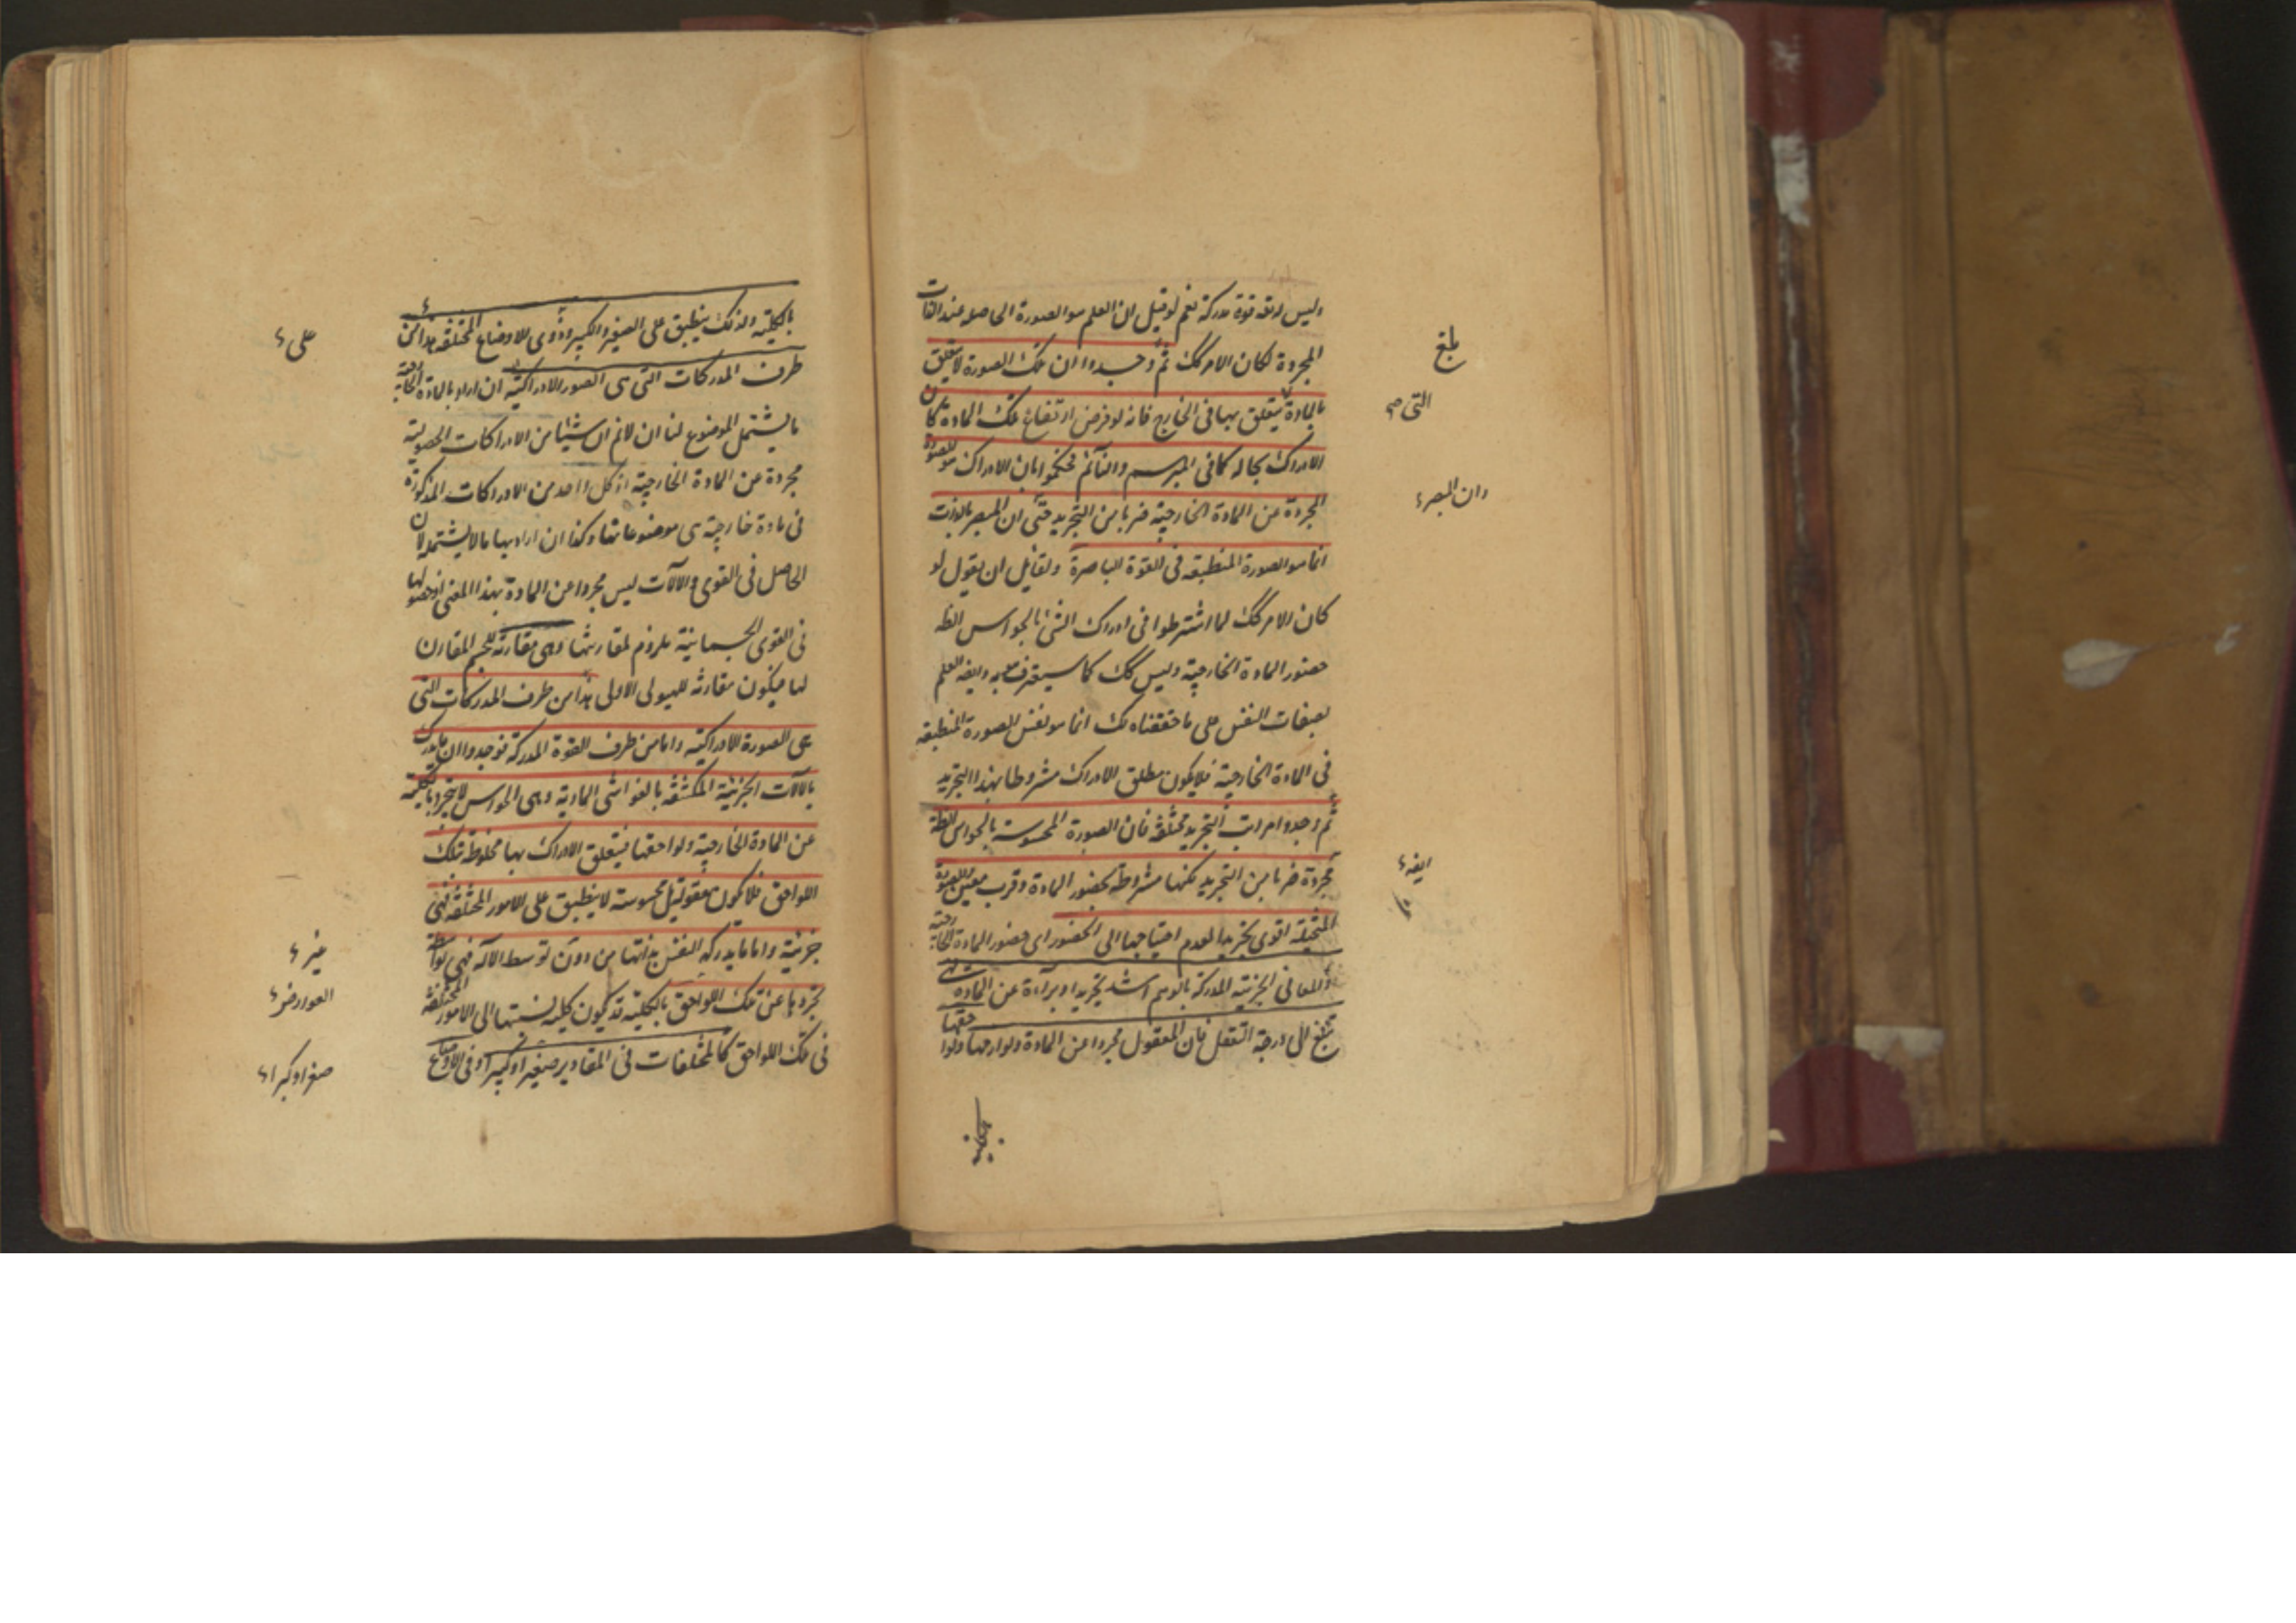 وليس له قوة مدركة نعم لو قيل ان العلم هو الصورة الحاصله عند الذات
المجردة لكان الامر كك ثم وجدوا ان تلك الصورة لا يتعلق
بالمادة يتعلق بها فى الخارج فانه لو فرض ارتفاع تلك المادة كان
الادراك بحاله كما فى المبرسم والنائم فحكموا بان الادراك هو الصورة
المجردة عن المادة الخارجية ضربا من التجريد حتى ان المبصر بالذات
انما هو الصورة المنطبقه فى القوة الباصرة ولقائل ان يقول لو
كان الامر كك لما اشترطوا فى ادراك الشئ بالحواس الظه
حضور المادة الخارجية وليس كك كما سيعترف به وايضه العلم
بصفات النفس على ما حققناه لك انما هو نفس الصورة المنطبقه
فى المادة الخارجية فلا يكون مطلق الادراك مشروطا بهذا التجريد
ثم وجدوا مراتب التجريد مختلفة فان الصورة المحسوسة بالحواس الظه
مجردة ضربا من التجريد لكنها مشروطة بحضور المادة وقرب معين والصورة
المتخيلة اقوى تجريدا لعدم احتياجها الى الحضور اى حضور المادة الخارجية
والمعانى الجزئية المدركة بالوهم اشد تجريدا وبراءة عن المادة
تبلغ الى درجة التعقل فان المعقول مجردا عن المادة ولوازمها ولواحقها
بلغ
التى صح
وان المبصر
ايضه
بالكلية ولذلك ينطبق على الصغير والكبير وذوى الاوضاع المختلفة هذا من
طرف المدركات التى هى الصور الادراكية ان اراد بالمادة الخارجية
ما يشتمل الموضوع لنا ان لا نم ان شيئا من الادراكات الحصولية
مجردة عن المادة الخارجية اذ كل واحد من الادراكات المذكورة
فى مادة خارجية هى موضوعاتها وكذا ان اراد بها ما لا يشتمله لان
الحاصل فى القوى والآلات ليس مجردا عن المادة بهذا المعنى اذ حصولها
فى القوى الجسمانية ملزوم لمقارنتها وهى مقارنة للجسم المقارن
لها فيكون مقارنه للهيولى الاولى هذا من طرف المدركات التى
هى الصورة الادراكية واما من طرف القوة المدركة فوجدوا ان ما يدرك
بالآلات الجزئية المكتنفة بالغواشى المادية وهى الحواس لا يتجرد بالكلية
عن المادة الخارجية ولواحقها فيتعلق الادراك بها مخلوطة بتلك
اللواحق فلا يكون معقولة بل محسوسة لا ينطبق على الامور المختلفة فهى
جزئية واما ما يدركه النفس بذاتها من دون توسط الآله فهى
تجردها عن تلك اللواحق بالكلية قد يكون كلية نسبتها الى الامور المختلفة
فى تلك اللواحق كالمختلفات فى المقادير صغيرا وكبيرا وفى الاوضاع
على
غير
العوارض
صغرا وكبرا